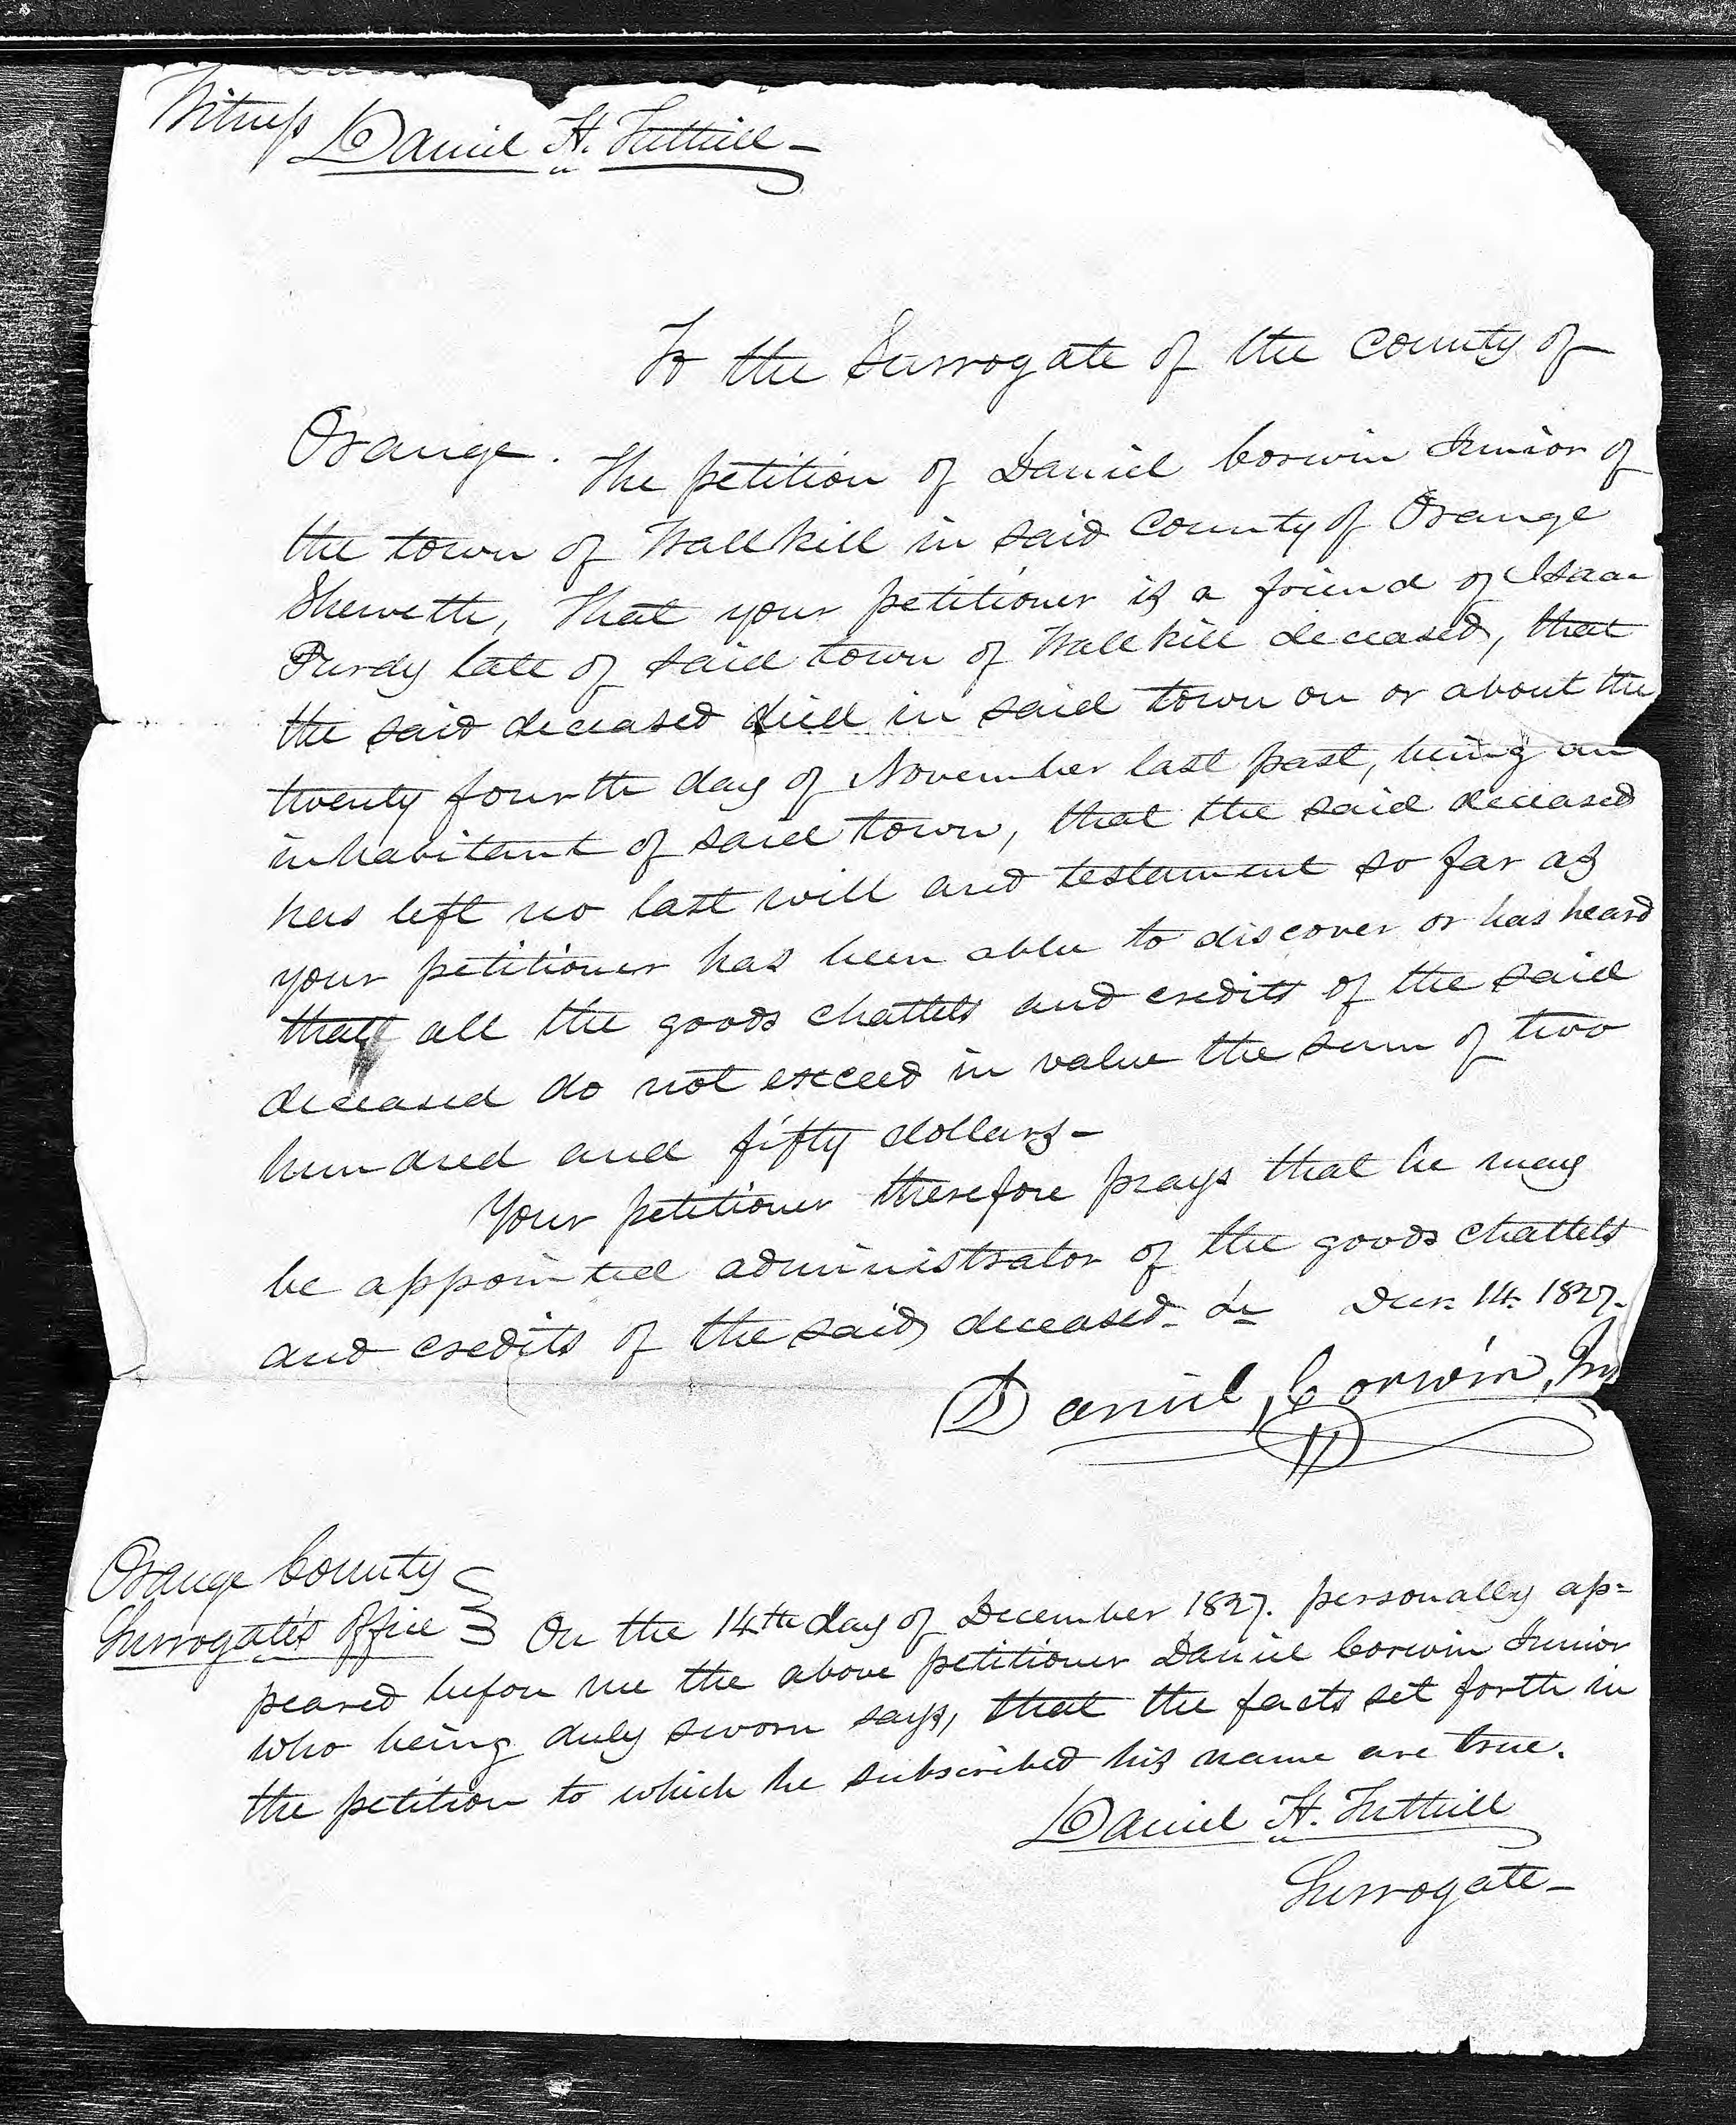 Witness Daniel H. Tuthill -
To the Surrogate of the County of
Orange. The petition of Daniel Corwin Junior of
the town of Wallkill in said County of Orange
Sheweth, That your petitioner is a friend of Isaac
Purdy late of said town of Wallkill deceased, that
the said deceased died in said town on or about the
twenty fourth day of November last past, being an
inhabitant of said town, that the said deceased
has left no last will and testament so far as
your petitioner has been able to discover or has heard
that all the goods chattels and credits of the said
deceased do not exceed in value the sum of two
hundred and fifty dollars -
Your petitioner therefore prays that he may
be appointed administrator of the goods chattels
and credits of the said deceased - &c Decr. 14. 1827.
Daniel Corwin, Jnr
Orange County
Surrogate's office } On the 14th day of December 1827. personally ap=
peared before me the above petitioner Daniel Corwin Junior
who being duly sworn says, that the facts set forth in
the petition to which he subscribed his name are true.
Daniel H. Tuthill
Surrogate -